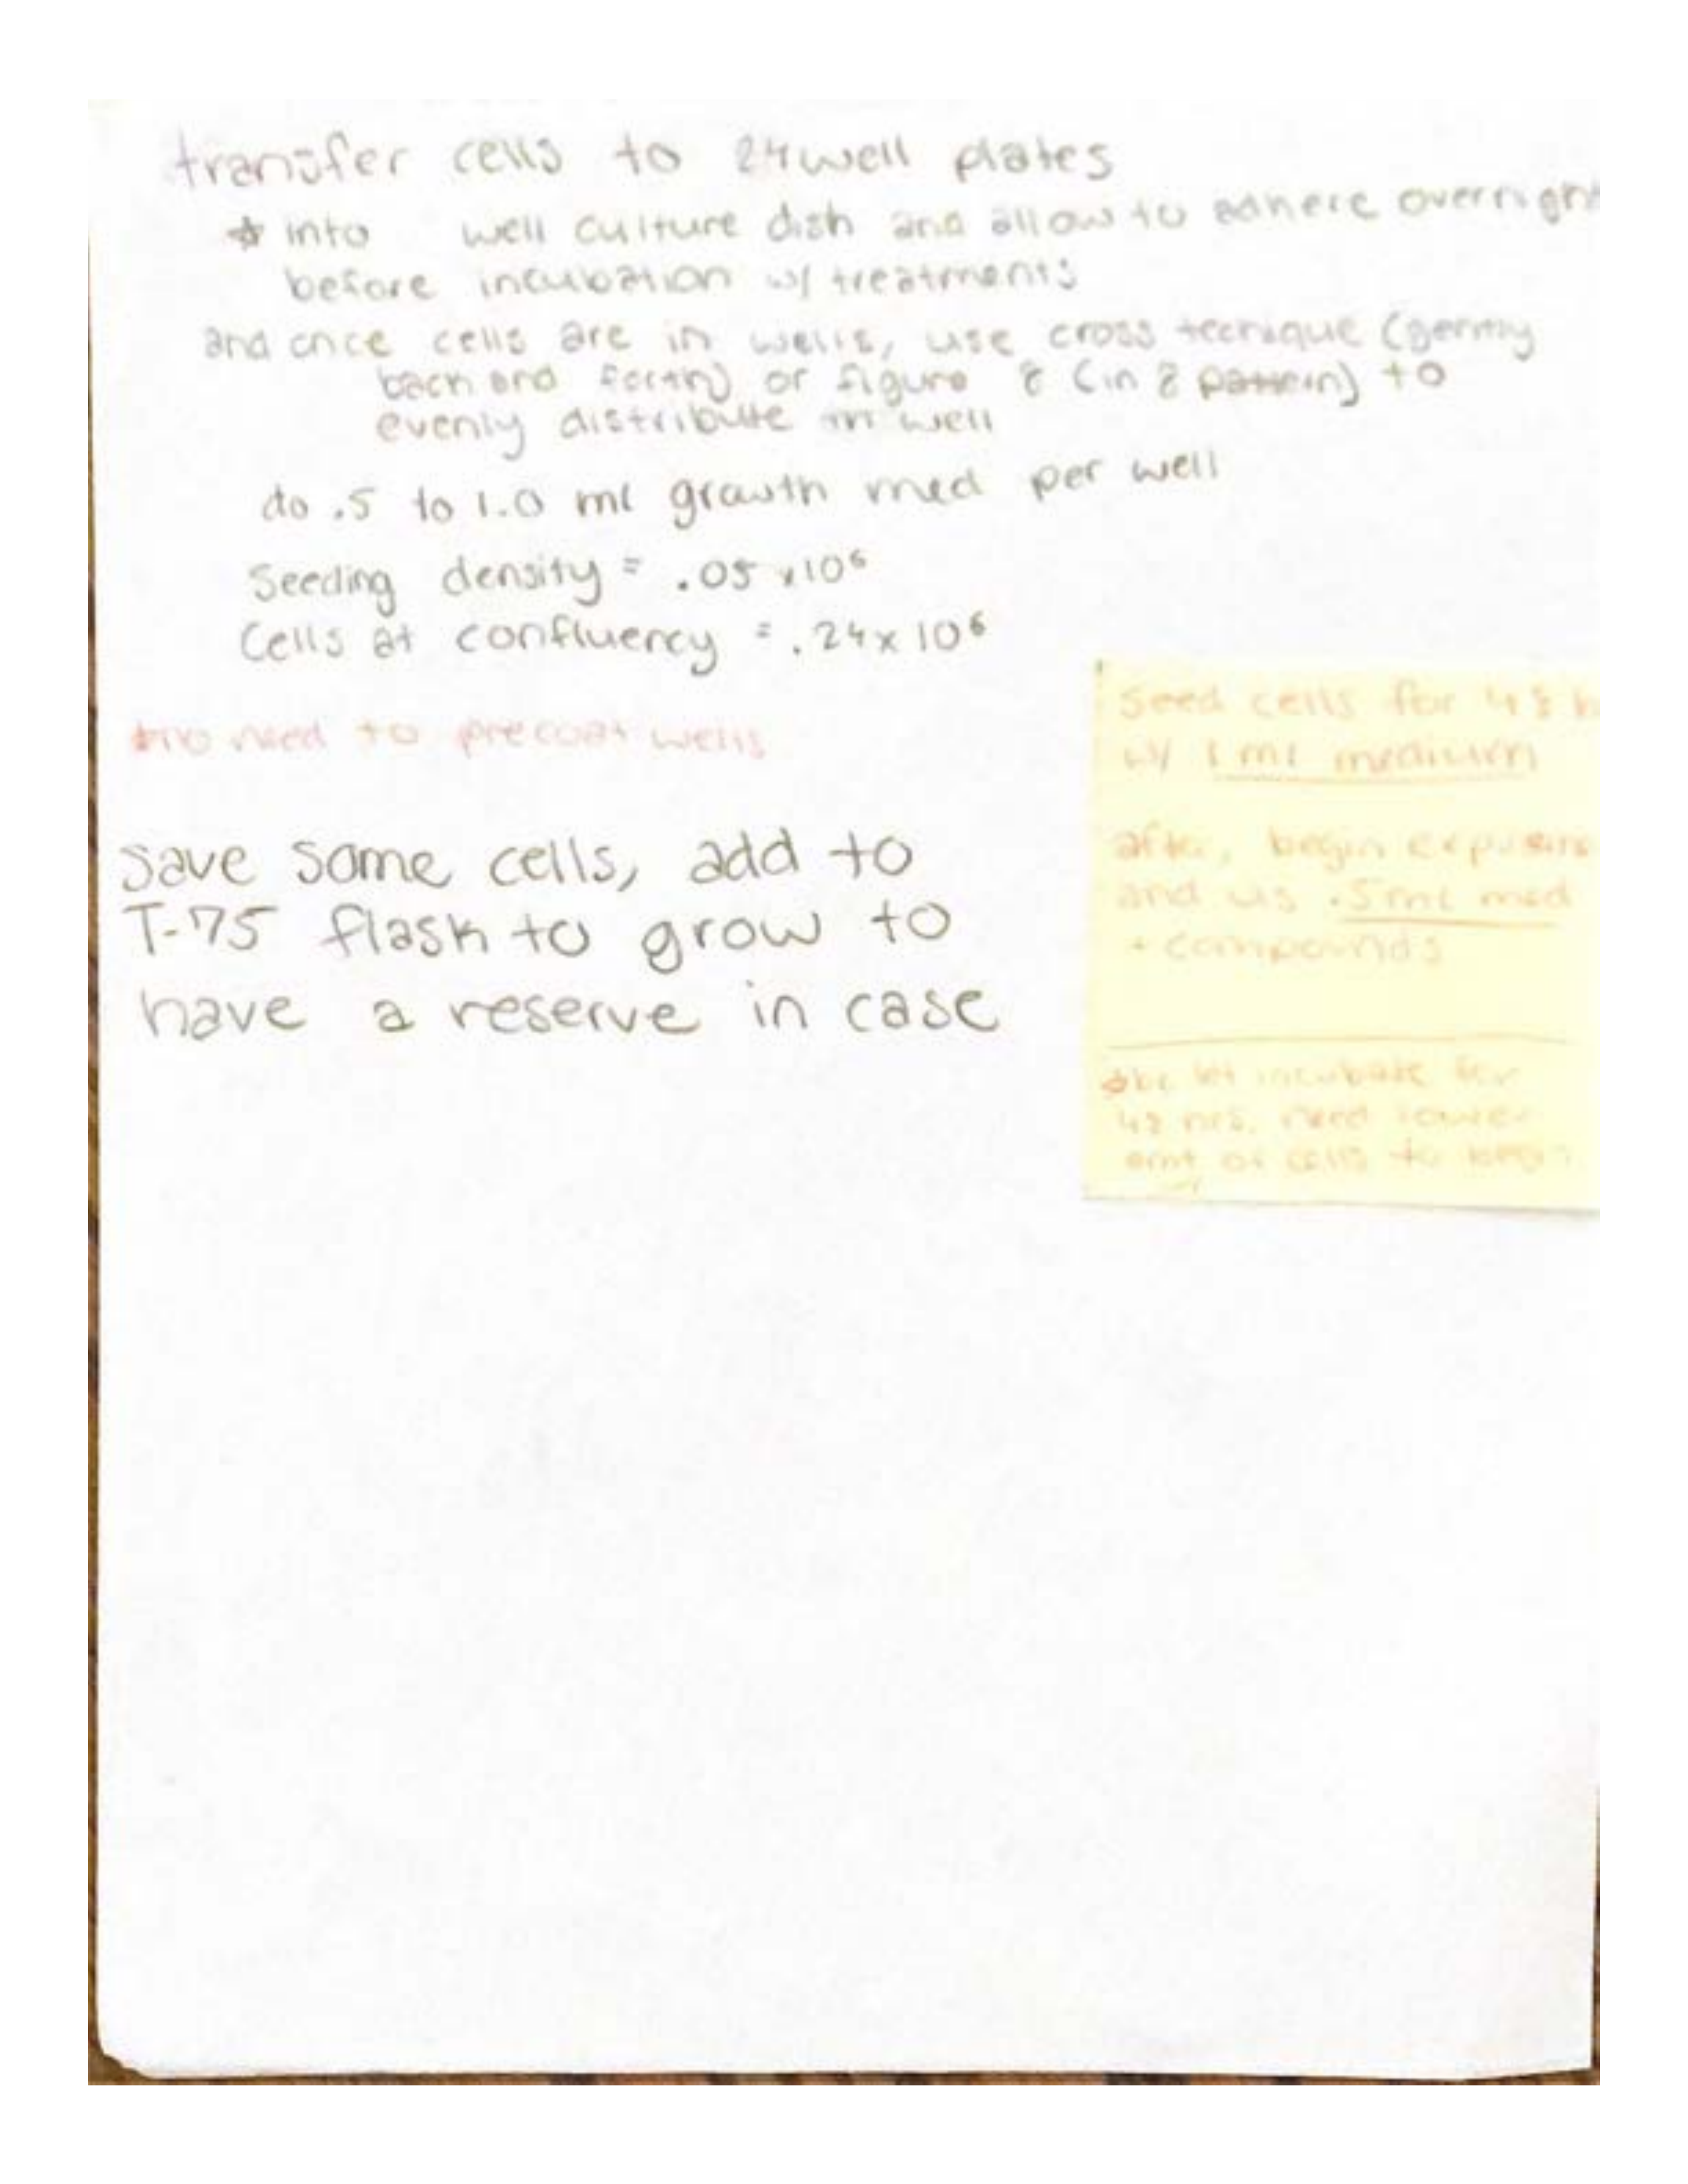 transfer cells to 24 well plates
☆ into well culture dish and allow to adhere overnight
before incubation w/ treatments
and once cells are in wells, use cross tecnique (gently
back and forth) or figure 8 (in 8 pattern) to
evenly distribute in well
do .5 to 1.0 ml growth med per well
Seeding density = .05 x 10⁶
Cells at confluency = .24 x 10⁶
*no need to precoat wells
Save some cells, add to
T-75 flask to grow to
have a reserve in case
Seed cells for 48 h
w/ 1 ml medium
after, begin exposure
and us .5 ml med
+ compounds
*bc let incubate for
48 hrs, need lower
amt of cells to begin